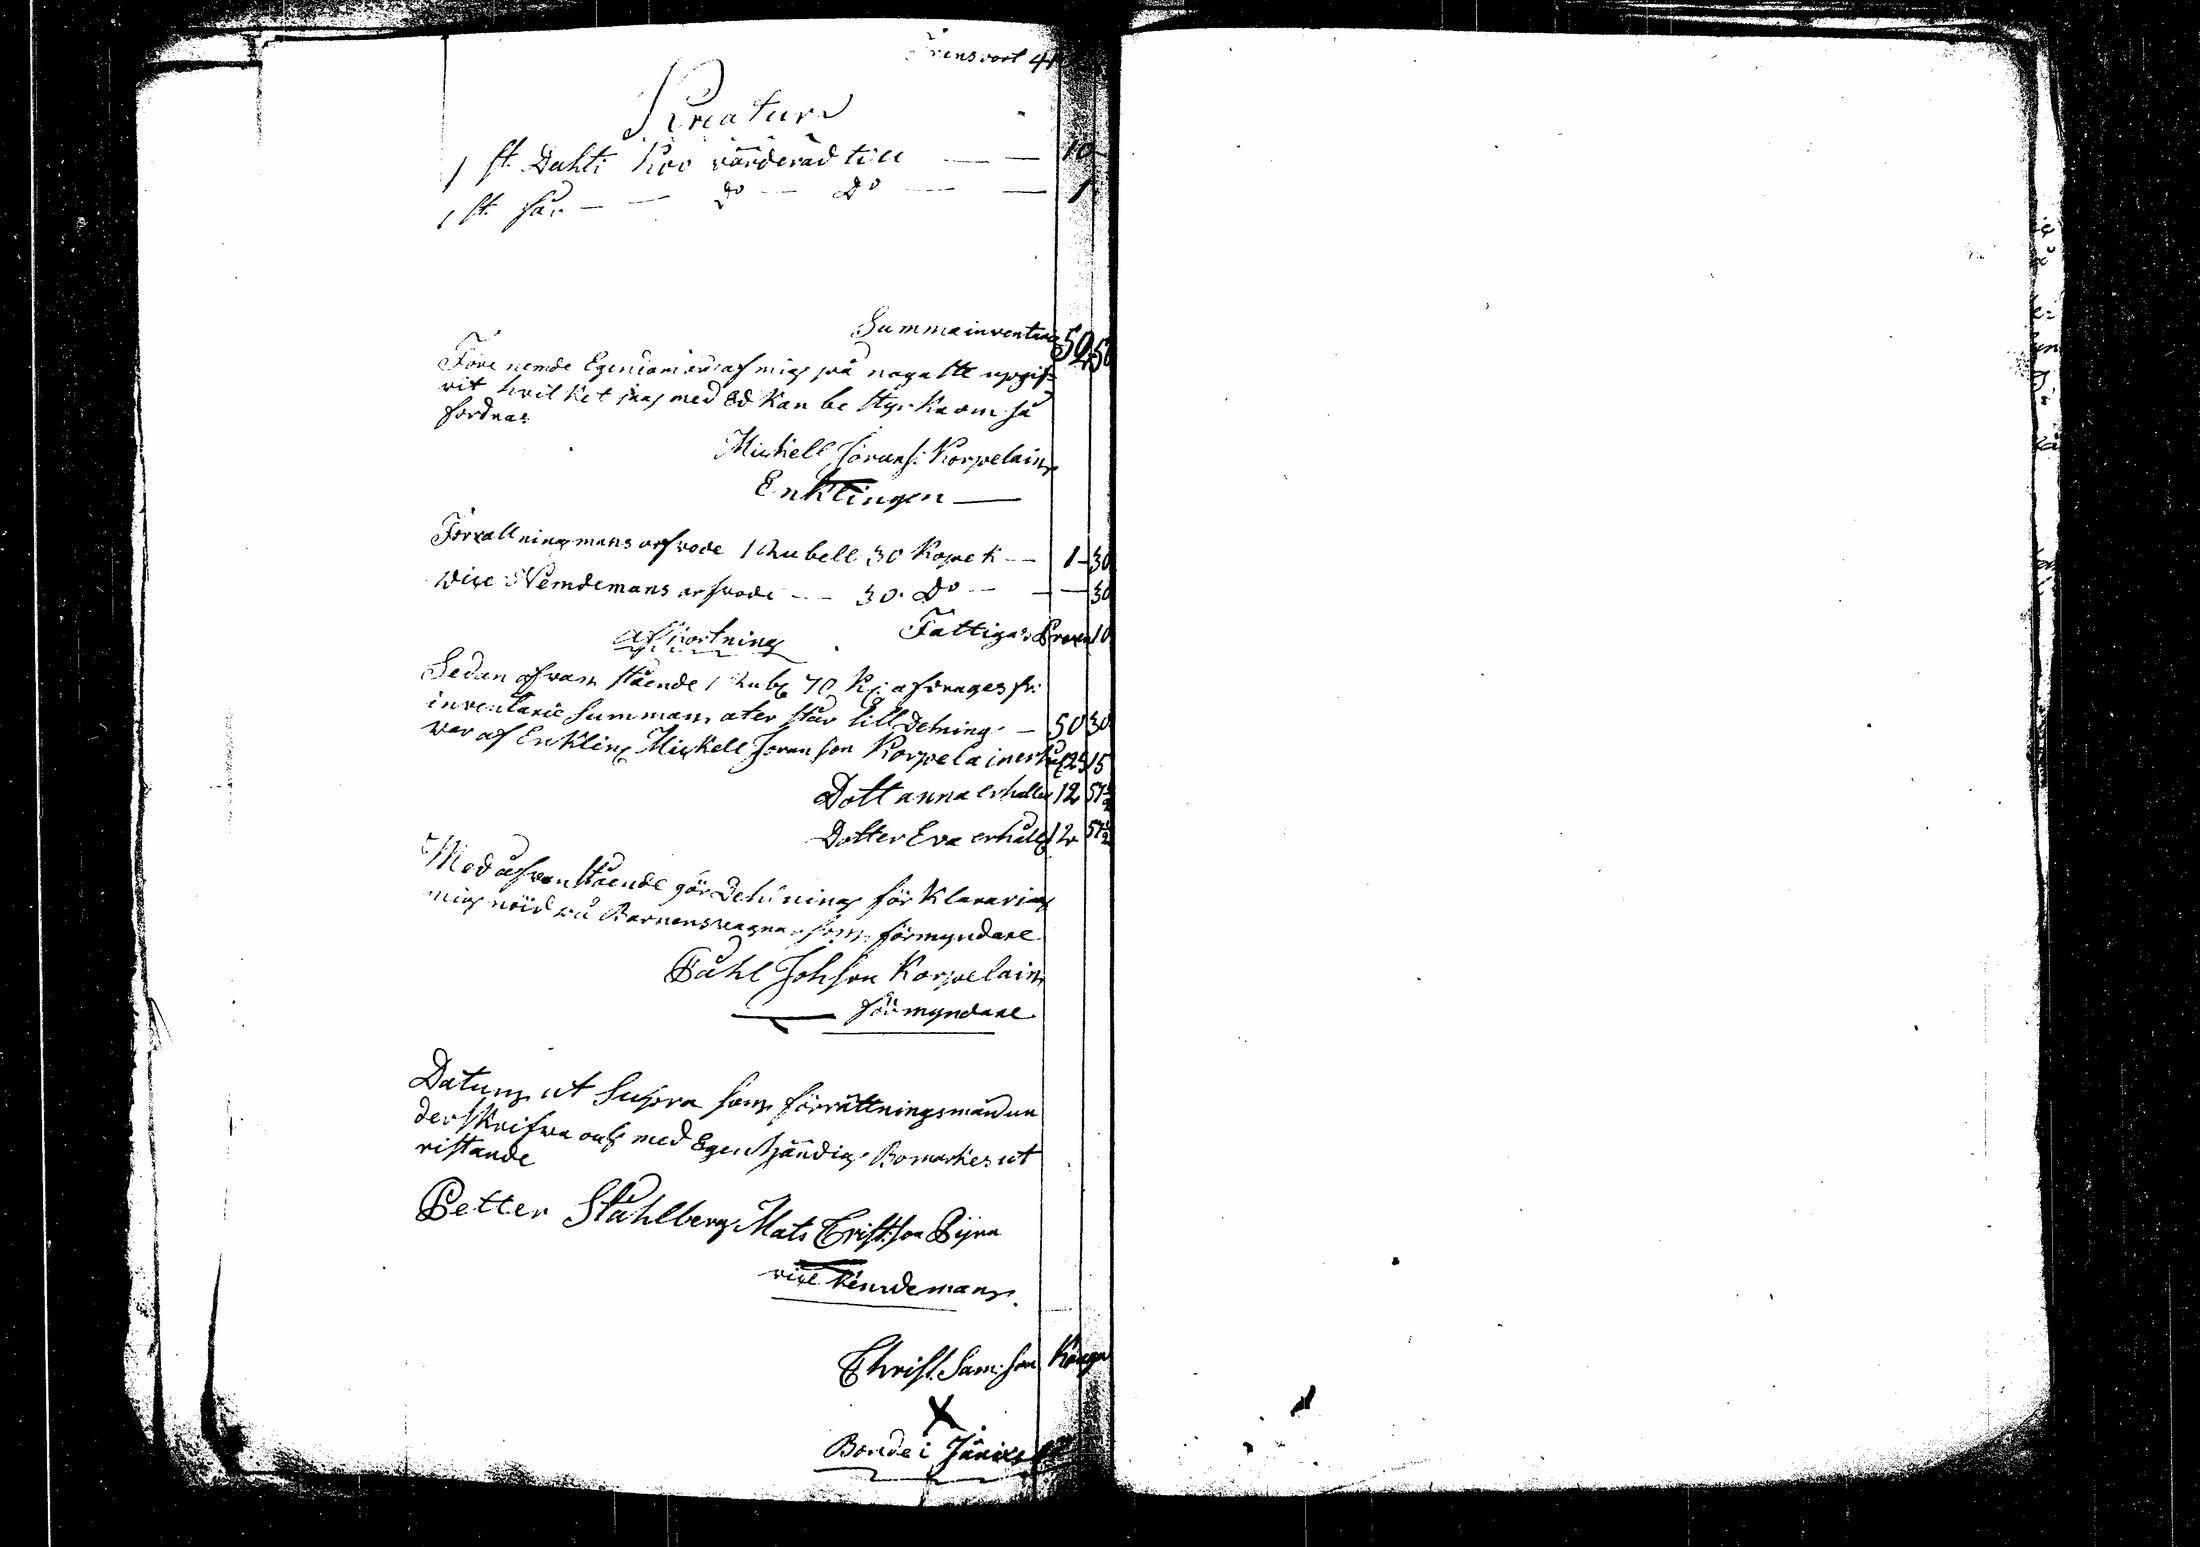 Transport 41
Kreatur
1 st. Dahti Koo värderad till — — 10 —
1 st. får — — Do — Do — — 1
Summa inventarie 52 50
Före nemde Egendom är af mig på nogaste upgif=
vit hvilket jag med Ed kan bestyrka om så
fordras
Mickell Jöransf: Korpelain
Enklingen —
Förrattningmans arfvode 1 Rubell 30 Kopek — 1 — 30
vice Nemdemans arfvode — — 30 Do — — — 30
Fattigas Procen 10
afkortning
Sedan ofvan stående 1 Rub 70 K: afdrages fr:
inventarie Summan ater står till Delning — 50 30
var af Enkling Mickell Joranson Korpelain 25 15
Dott anna erhåller 12 57½
Dotter Eva erhåller 12 57½
Med ofvanstående gör Delning för Klarar jag
mig nöid på Barnens vägnar som förmyndare
Påhl Johson Korpelain
förmyndare
Datum ut Supra som förrättningsman un
derskrifva och med Egenhändig Bomarkes ut
ristande
Petter Ståhlberg Mats Crist:son Pijra
vice Nemdeman
Christ. Sam:son
X
Bonde i